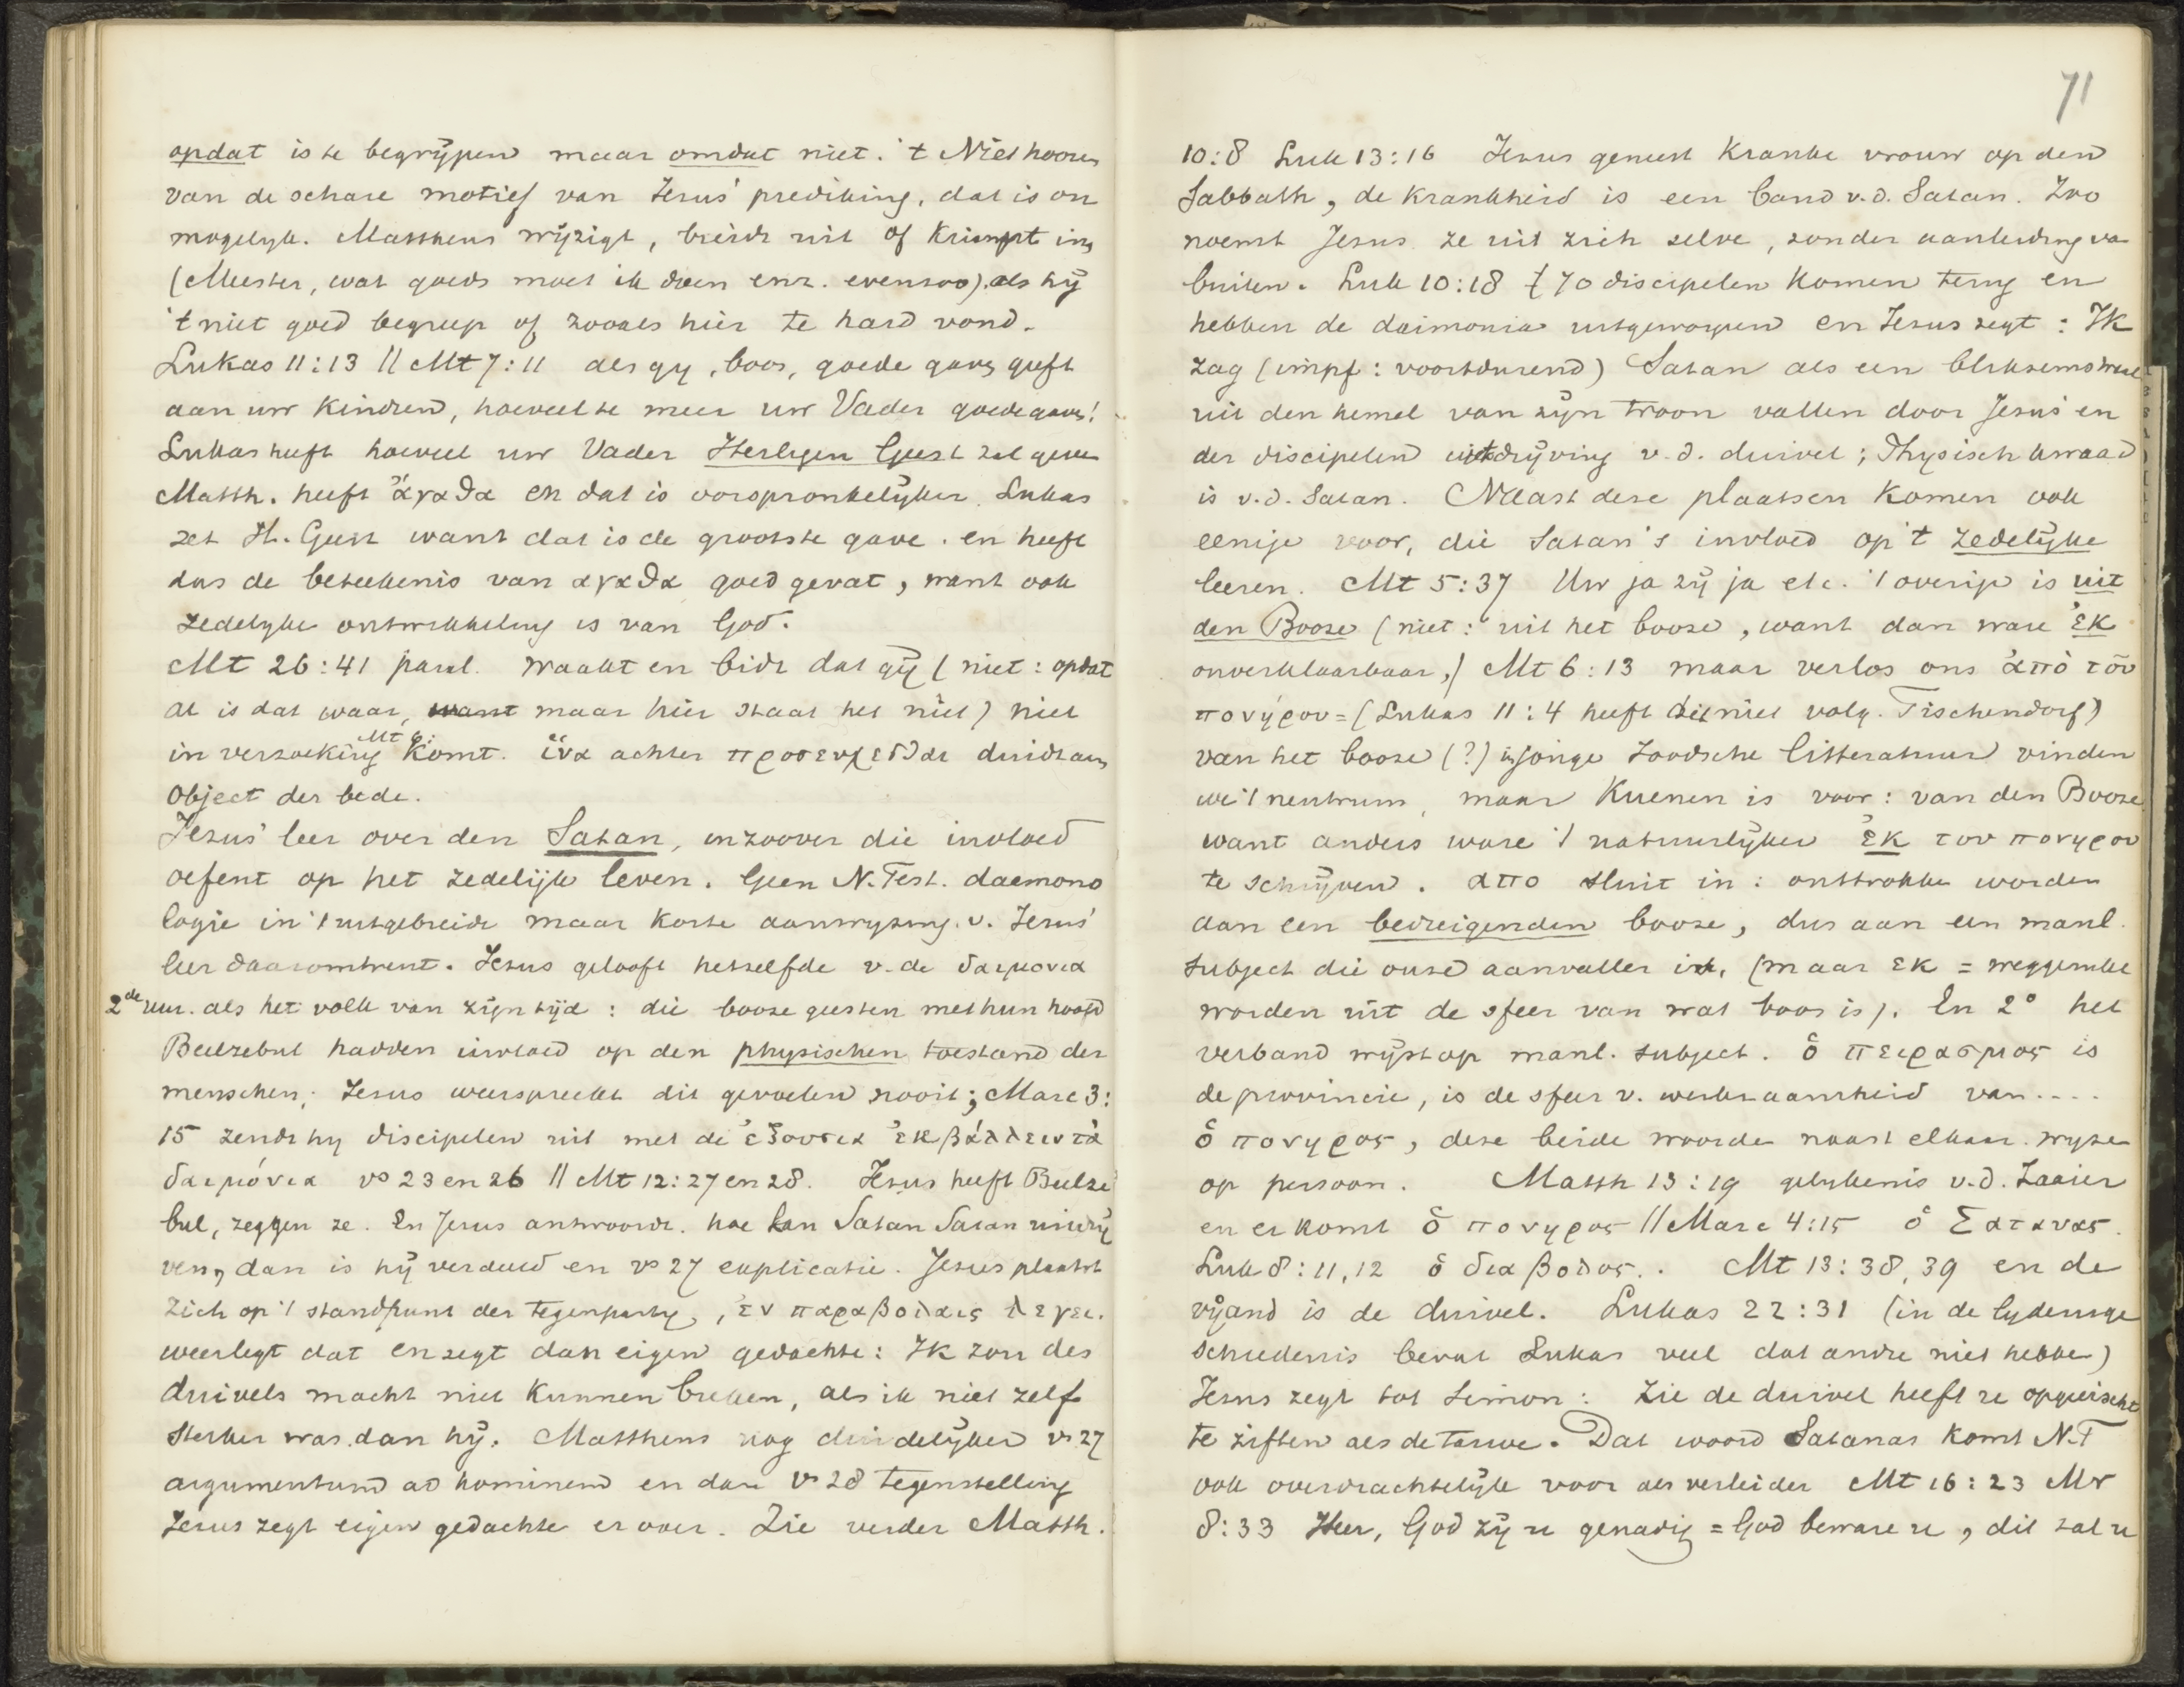 opdat is te begrijpen maar omdat niet. 't Niet hooren
van de schare motief van Jezus' prediking, dat is on
mogelyk. Mattheus wijzigt, breidt uit of krimpt in,
(Meester, wat goeds moet ik doen enz. evenzoo). als hij
't niet goed begreep of zooals hier te hard vond.
Lukas 11:13 || Mt 7:11 als gy, boos, goede gaven geeft
aan uw kindren, hoeveel te meer uw Vader goede gaven!
Lukas heeft hoeveel uw Vader Heiligen Geest zal geven
Matth. heeft ἀγαθα en dat is oorspronkelijker. Lukas
zet H. Geest want dat is de grootste gave. en heeft
dus de beteekenis van αγαθα goed gevat, want ook
zedelyke ontwikkeling is van God.
Mt 26:41 paral. waakt en bidt dat gij (niet: opdat
al is dat waar, want maar hier staat het niet) niet
Mt 6:
in verzoeking komt. ἵνα achter προσευχεσθαι duidt aan
object der bede.
Jezus' leer over den Satan, inzoover die invloed
oefent op het zedelijk leven. Geen N. Test. daemono
logie in 't uitgebreide maar korte aanwyzing. v. Jezus'
leer daaromtrent. Jezus gelooft hetzelfde v. de δαιμονια
2de uur. als het volk van zijn tijd: die booze geesten met hun hoofd
Beelzebul hadden invloed op den physischen toestand der
menschen; Jezus weerspreekt dit gevoelen nooit; Marc 3:
15 zendt hy discipelen uit met de ἐξουσια ἐκβάλλειν τὰ
δαιμόνια vs 23 en 26 || Mt 12:27 en 28. Jezus heeft Beelze
bul, zeggen ze. En Jezus antwoordt. hoe kan Satan Satan uitdrij
ven, dan is hij verdeeld en vs 27 explicatie. Jezus plaatst
zich op 't standpunt der tegenparty, ἐν παραβολαις λεγει.
weerlegt dat en zegt dan eigen gedachte: Ik zou des
duivels macht niet kunnen breken, als ik niet zelf
sterker was dan hij. Mattheus nog duidelijker vs 27
argumentum ad hominem en dan vs 28 tegenstelling
Jezus zegt eigen gedachte er over. Zie verder Matth.
71
10:8 Luk 13:16 Jezus geneest kranke vrouw op den
Sabbath, de krankheid is een band v.d. Satan. Zoo
noemt Jezus ze uit zich zelve, zonder aanleiding van
buiten. Luk 10:18 † 70 discipelen komen terug en
hebben de daimonia uitgeworpen en Jezus zegt: Ik
zag (impf: voortdurend) Satan als een bliksemstraal
uit den hemel van zijn troon vallen door Jezus' en
der discipelen uitdrijving v.d. duivel; Physisch kwaad
is v.d. Satan. Naast deze plaatsen komen ook
eenige voor, die Satan's invloed op 't zedelijke
leeren. Mt 5:37 Uw ja zij ja etc. 't overige is uit
den Booze (niet: uit het booze, want dan ware ἐκ
onverklaarbaar,) Mt 6:13 maar verlos ons ἀπὸ τοῦ
πονήρου = (Lukas 11:4 heeft dit niet volg. Tischendorf)
van het booze (?) in jonge Joodsche litteratuur vinden
we 't neutrum, maar Kuenen is voor: van den Booze
want anders ware 't natuurlijker ἐκ του πονηρου
te schrijven. απο sluit in: onttrokken worden
aan een bedreigenden booze, dus aan een manl.
subject die onze aanvaller is, (maar εκ = weggerukt
worden uit de sfeer van wat boos is). En 2° het
verband wijst op manl. subject. ὁ πειρασμος is
de provincie, is de sfeer v. werkzaamheid van....
ὁ πονηρος, deze beide woorden naast elkaar wyzen
op persoon. Matth 13:19 gelykenis v.d. Zaaier
en er komt ὁ πονηρος || Marc 4:15 ὁ Σατανας.
Luk 8:11,12 ὁ διαβολος.. Mt 13:38, 39 en de
vijand is de duivel. Lukas 22:31 (in de lydensge
schiedenis bevat Lukas veel dat andre niet hebben)
Jezus zegt tot Simon: Zie de duivel heeft u opgeëischt
te ziften als de tarwe. Dat woord Satanas komt N.T
ook overdrachtelijk voor als verleider Mt 16:23 Mr
8:33 Heer, God zij u genadig = God beware u, dit zal u